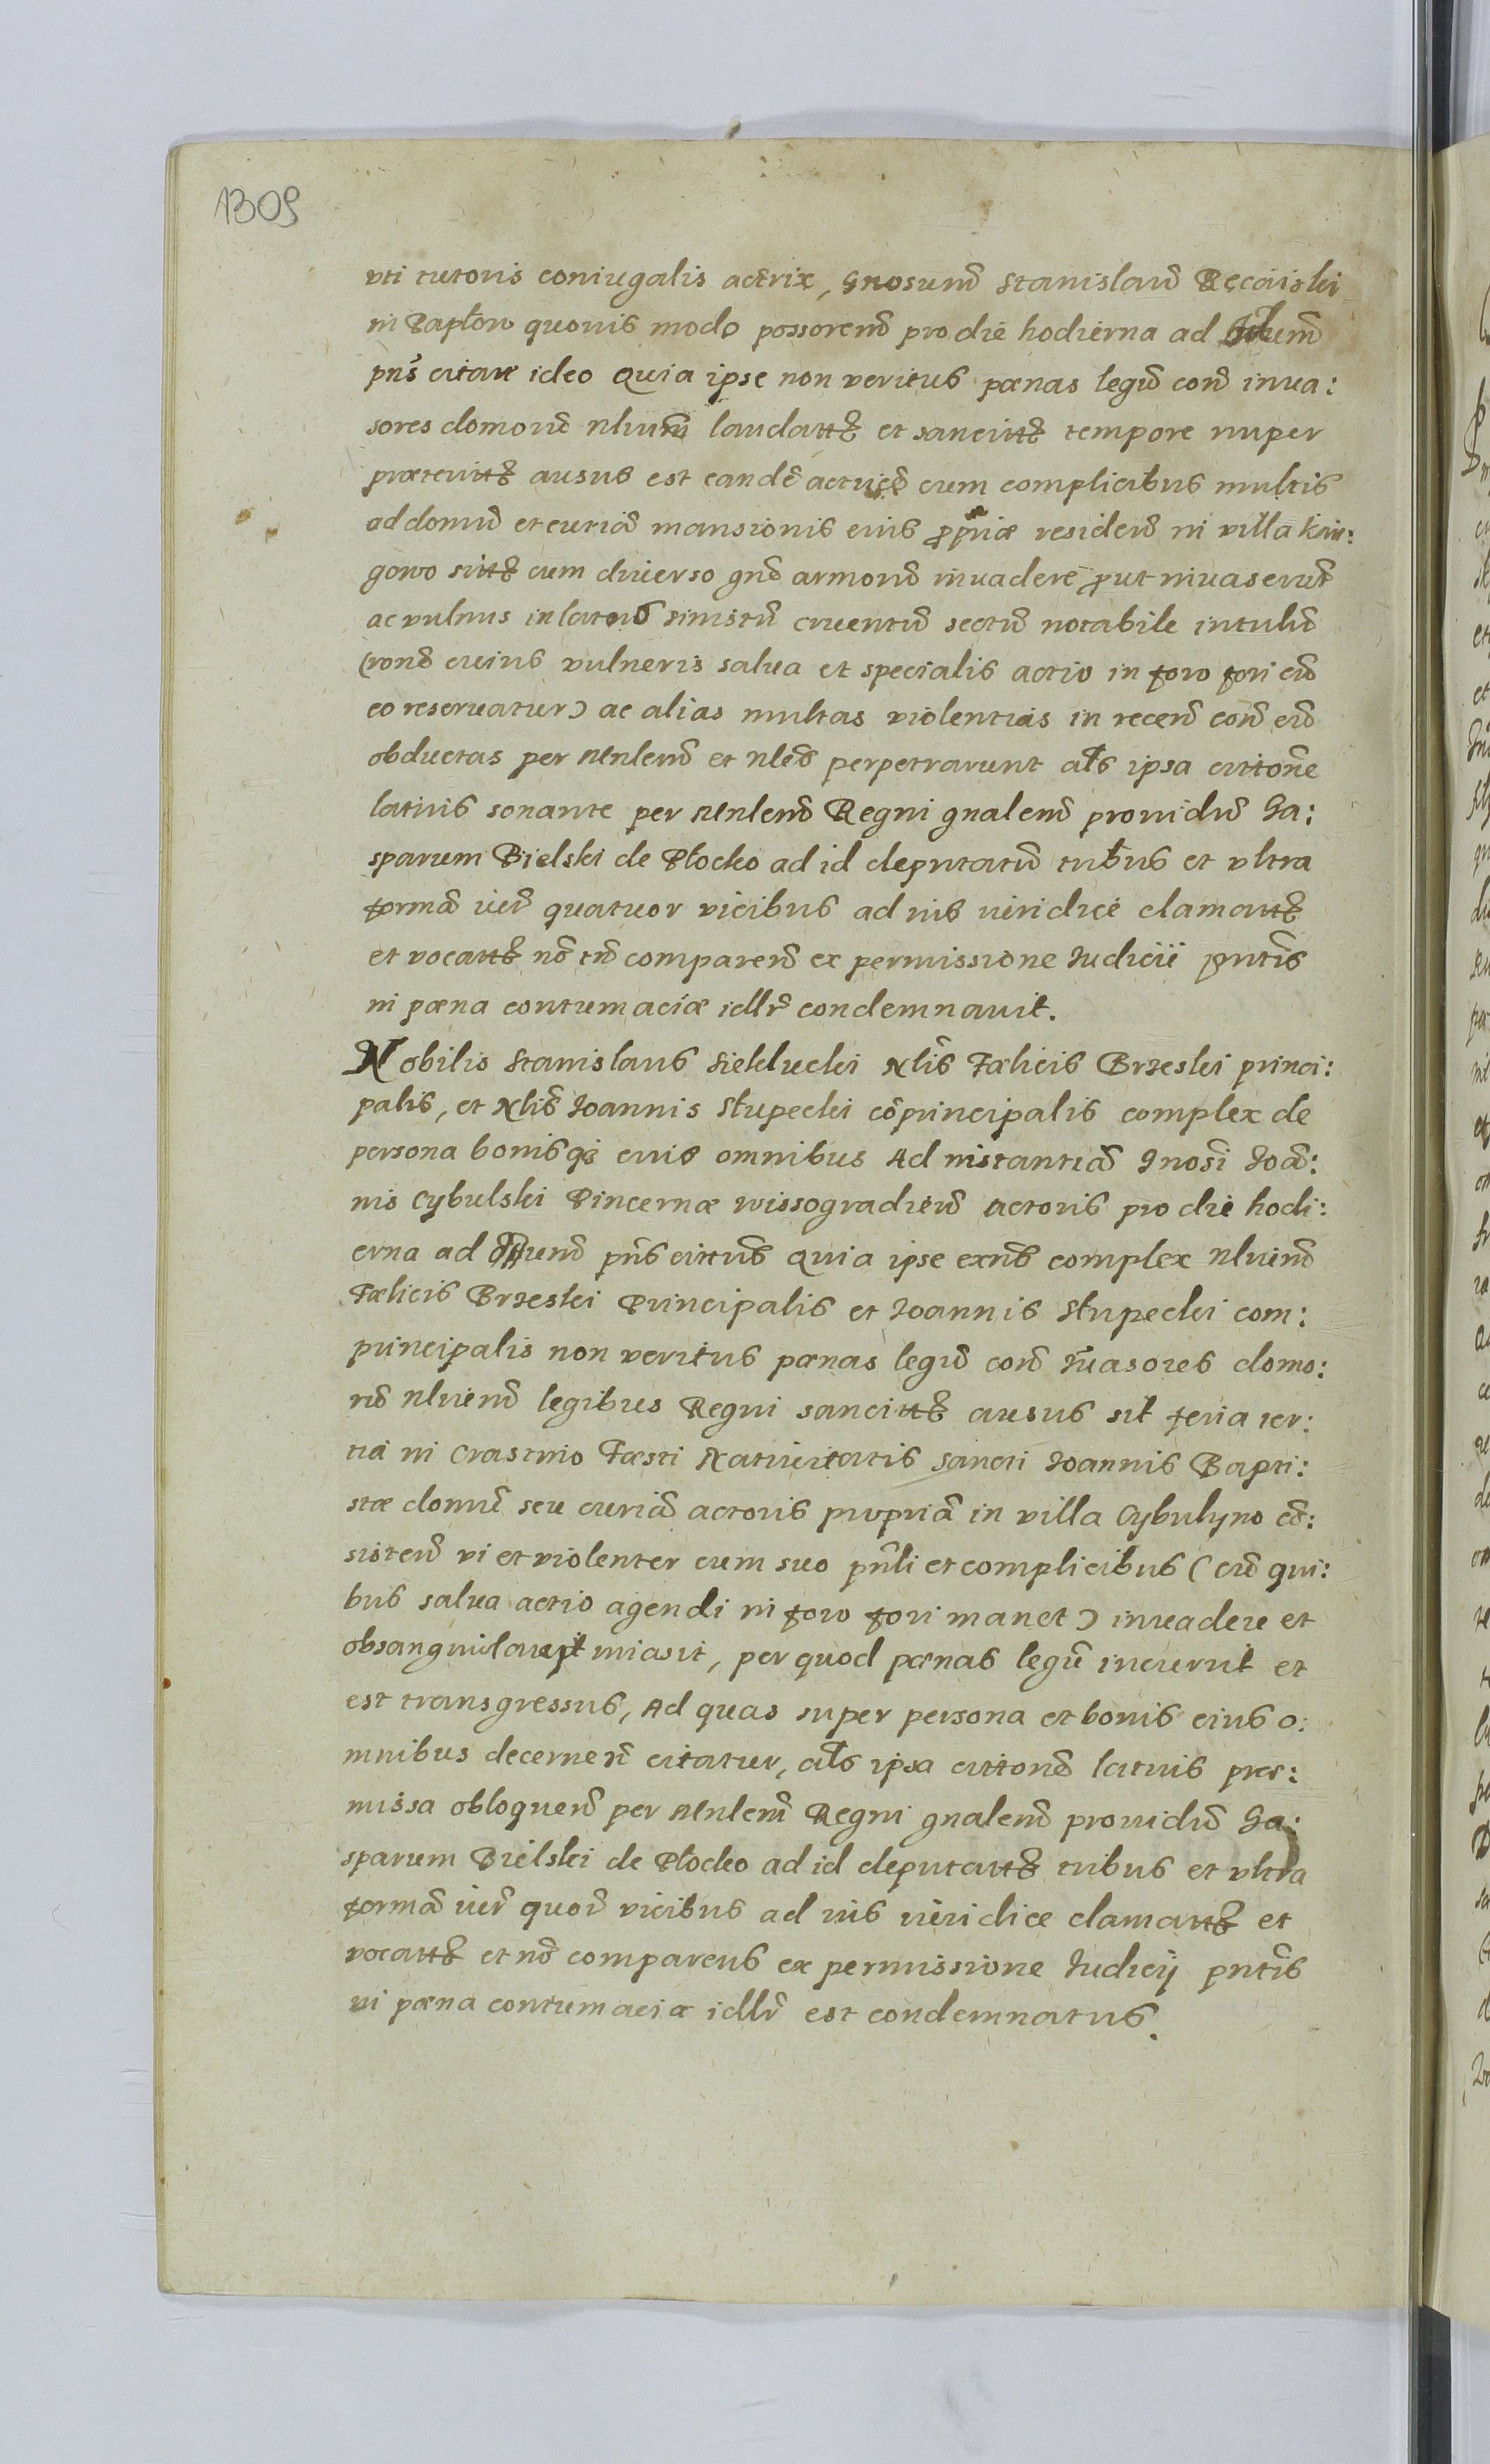 1309
vti tutoris coniugalis actrix, Gnosum Stanislaum Recaiski
in Rapłow quouis modo possorem pro die hodierna ad
pns̄ citare ideo Quia ipse non veritus pœnas legū con̄ inua:
sores domorū nlium laudatt et sancitt tempore nuper
præteritt ausus est eandē actricē cum complicibus multis
ad domū et curiā mansionis eius ppriæ residen̄ in villa
gowo sitt cum diuerso gn̄e armorū inuadere put inuaserūt
ac vulnus in latus sinistrū cruentū sectū notabile intulit
(ron̄e cuius vulneris salua et specialis actio in foro fori cū
eo reseruatur) ac alias multas violentias in recen̄ con̄ eū
obductas per Mnlem et nlēs perpetrarunt als̄ ipsa cittone
latius sonante per Mnlem Regni gnalem prouidū Ga:
sparum Bielski de Płocko ad id deputatū tribus et vltra
formā iur̄ quatuor vicibus ad ius iuridice clamatt
et vocatt nō tn̄ comparen̄ ex permissione Iudicii pntis̄
in pœna contumaciæ idllr̄ condemnauit.
Nobilis Stanislaus Siekluckị Nlis̄ Fælicis Brzeski princi:
palis, et Nlis̄ Ioannis Słupecki cōprincipalis complex de
persona bonisq3 eius omnibus Ad instantiā Gnosi Ioā:
nis Cybulski Pincernæ wissogradien̄ actoris pro die hodi:
erna ad pns̄ cittus Quia ipse exn̄s complex nluim
Fælicis Brzeski Principalis et Ioannis Słupecki com:
principalis non veritus pœnas legū con̄ inuasores domo:
rū nluim legibus Regni sancitt ausus sit feria ter:
tia in Crastino Fæsti Natiuitatis sancti Ioannis Bapti:
stæ domū seu curiā actoris propriā in villa Cybulyno cō:
sisten̄ vi et violenter cum suo pnli et complicibus (cū qui:
bus salua actio agendi in foro fori manet) inuadere et
inuasit, per quod pœnas legū incurrit et
est transgressus, Ad quas super persona et bonis eius o:
mnibus decernen̄ citatur, als̄ ipsa cittone latius præ:
missa obloquen̄ per Mnlem Regni gnalem prouidū Ga:
sparum Bielski de Płocko ad id deputatt tribus et vltra
formā iur̄ quor̄ vicibus ad ius iuridice clamatt et
vocatt et nō comparens ex permissione Iudicij pntis̄
in pœna contumaciæ idllr̄ est condemnatus.